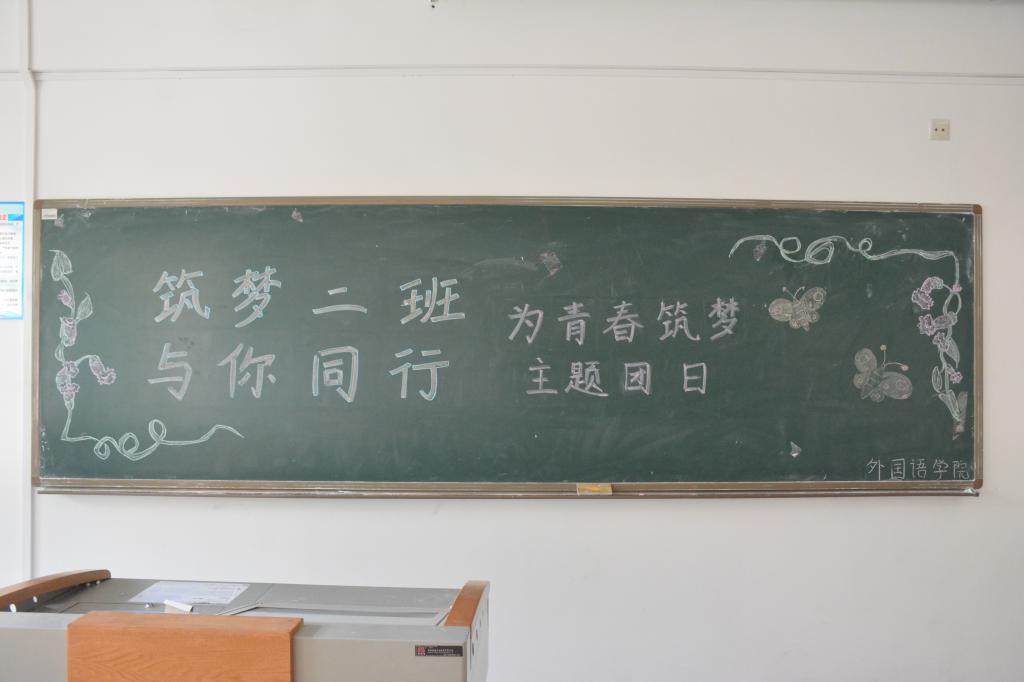 筑梦二班
与你同行
为青春筑梦
主题团日
外国语学院